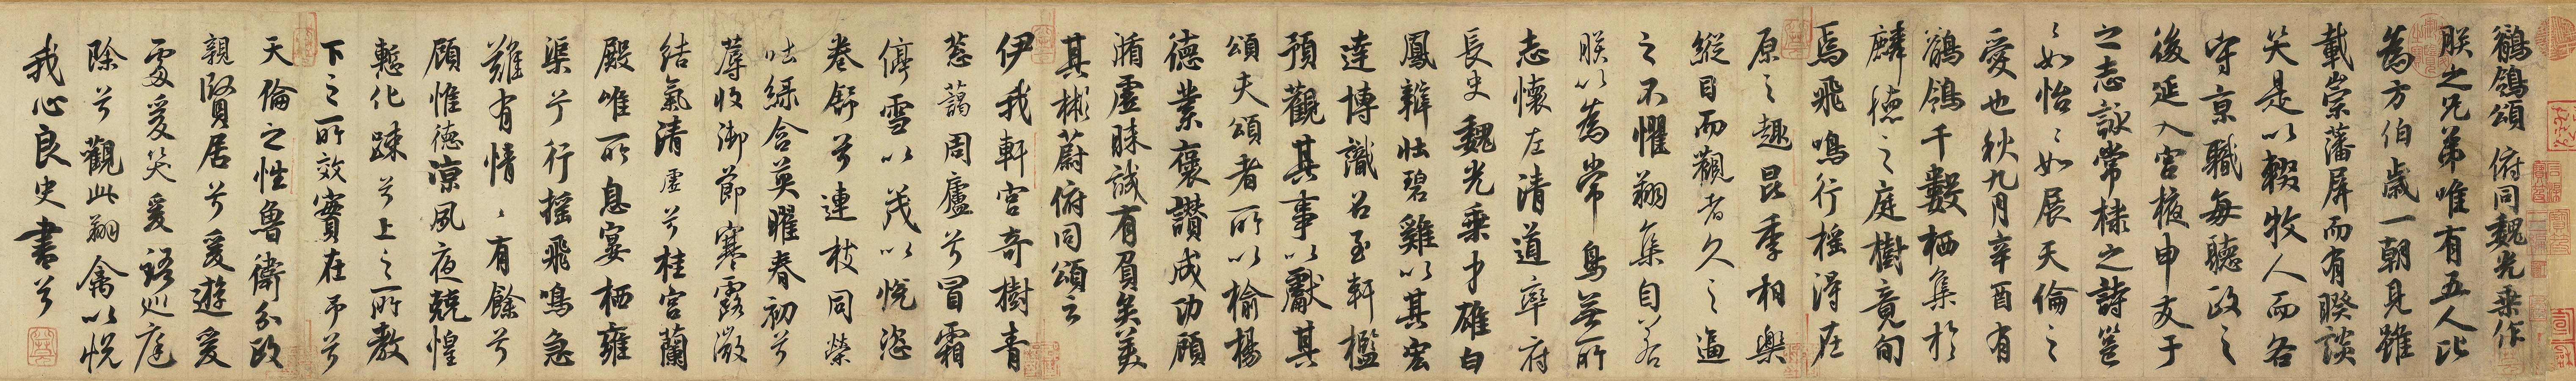 鶺鴒頌 俯同魏光乘作
朕之兄弟唯有五人比
為方伯歲一朝見雖
載崇藩屏而有睽談
笑是以輟牧人而各
守京職每聽政之
後延入宮掖申友于
之志詠常棣之詩邕
〻如怡〻如展天倫之
愛也秋九月辛酉有
鶺鴒千數栖集於
麟德之庭樹竟旬
焉飛鳴行搖得在
原之趣昆季相樂
縱目而觀者久之逼
之不懼翔集自若
朕以為常鳥無所
志懷左清道率府
長史魏光乘才雄白
鳳辯壯碧雞以其宏
達博識召至軒檻
預觀其事以獻其
頌夫頌者所以揄揚
德業褒讚成功顧
循虛昧誠有負矣美
其彬蔚俯同頌云
伊我軒宮奇樹青
蔥藹周廬兮冒霜
停雪以茂以悅恣
卷舒兮連枝同榮
吐綠含英曜春初兮
蓐收御節寒露微
結氣清虛兮桂宮蘭
殿唯所息宴栖雍
渠兮行搖飛鳴急
難有情〻有餘兮
顧惟德涼夙夜兢惶
慙化踈兮上之所教
下之所效實在予兮
天倫之性魯衛分政
親賢居兮爰遊爰
處爰笑爰語巡庭
除兮觀此翔禽以悅
我心良史書兮